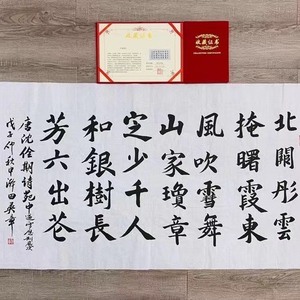 收藏证书
北闕彤雲
掩曙霞東
風吹雪舞
山家瓊章
定少千人
和銀樹長
芳六出花
唐沈佺期詩苑中遇雪應制
戊子仲秋中浣田英章